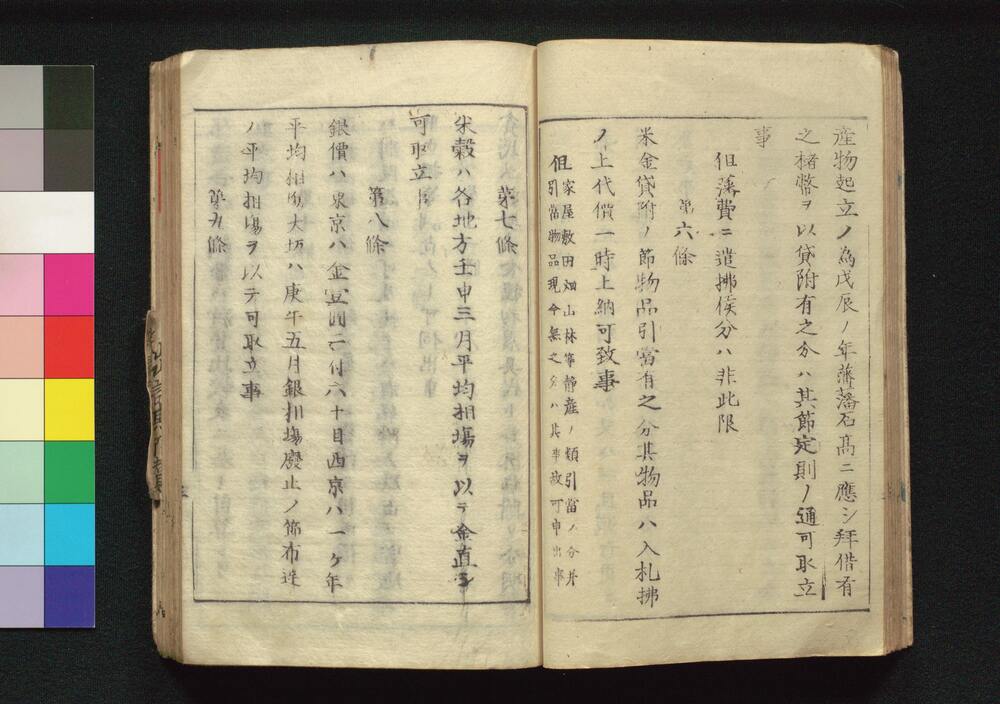 産物起立ノ為戊辰ノ年藩藩石高ニ應シ拜借有
之楮幣ヲ以貸附有之分ハ其節定則ノ通可取立
事
但藩費ニ遣拂候分ハ非此限
第六條
米金貸附ノ節物品引當有之分其物品ハ入札拂
ノ上代價一時上納可致事
但家屋敷田畑山林寧静産ノ類引當ノ分并
引當物品現今無之分ハ其事故可申出事
第七條
米穀ハ各地方壬申三月平均相場ヲ以テ金直ヲ
可取立事
第八條
銀價ハ東京ハ金壹圓ニ付六十目西京ハ一ヶ年
平均相場大坂ハ庚午五月銀相場廢止ノ節布達
ノ平均相場ヲ以テ可取立事
第九條